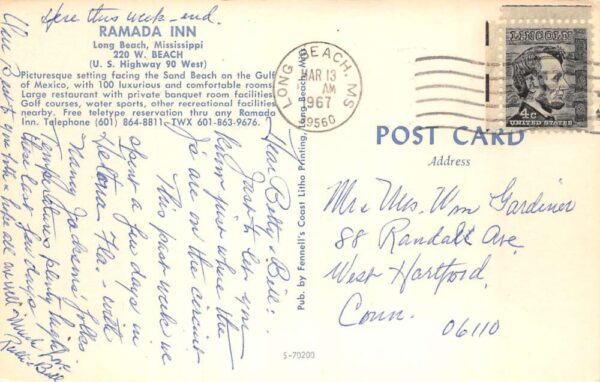 Here this week-end.
RAMADA INN
Long Beach, Mississippi
220 W. BEACH
(U. S. Highway 90 West)
Picturesque setting facing the Sand Beach on the Gulf
of Mexico, with 100 luxurious and comfortable rooms.
Large restaurant with private banquet room facilities.
Golf courses, water sports, other recreational facilities
nearby. Free teletype reservation thru any Ramada
Inn. Telephone (601) 864-8811-TWX 601-863-9676.
Dear Betty & Bill:
Just to let you
know just where the
are on the circuit
This past week we
spent a few days in
Fla. - with
Nancy folks
Temperatures plenty high
these last few days.
you both & hope all are well - Much
Ruth & Bill
Pub. by Fennell's Coast Litho Printing, Long Beach, Miss.
S-70200
LONG BEACH, MS
MAR 13
AM
1967
39560
LINCOLN
4c
UNITED STATES
POST CARD
Address
Mr & Mrs. Wm Gardiner
88 Randall Ave.
West Hartford,
Conn.
06110